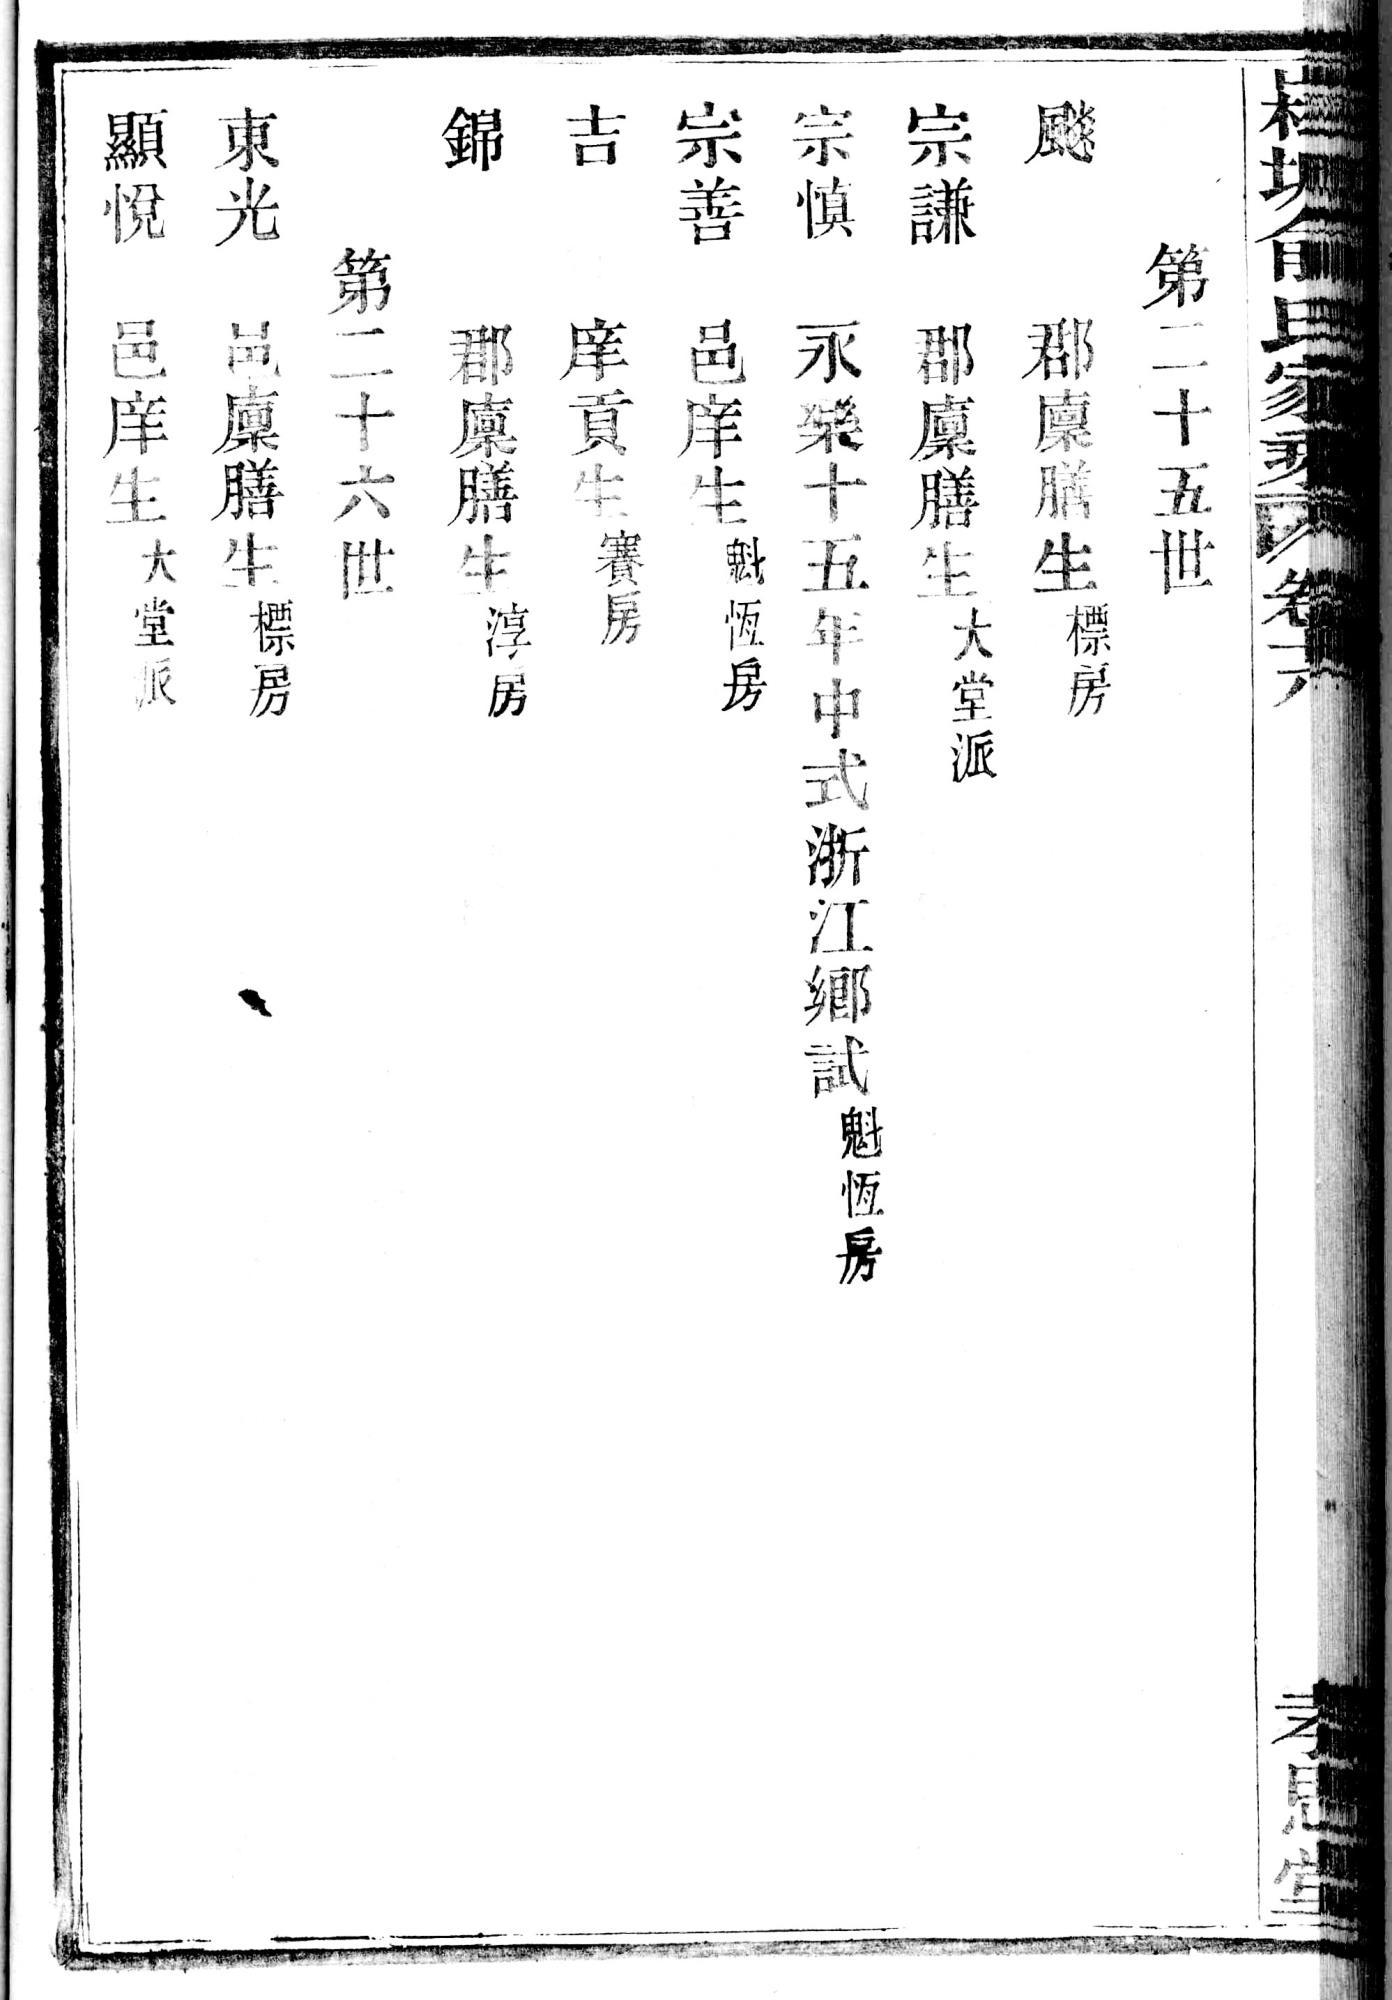 俞氏家乘 卷六
孝思堂
第二十五世
飈 郡廩膳生標房
宗謙 郡廩膳生大堂派
宗慎 永樂十五年中式浙江鄉試魁恆房
宗善 邑庠生魁恆房
吉 庠貢生賽房
錦 郡廩膳生淳房
第二十六世
東光 邑廩膳生標房
顯悅 邑庠生大堂派